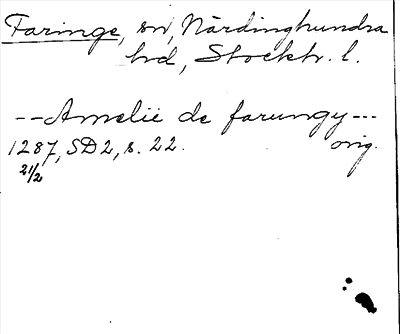 Faringe, sn, Närdinghundra
hd, Stockh. l.
--Amelie de farungy---
1287, SD2, s. 22. orig.
21/2